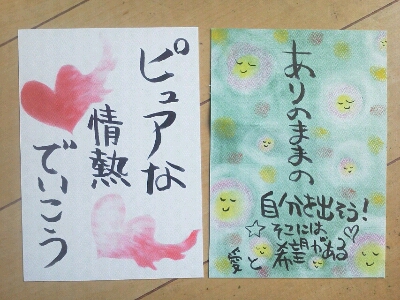 ピュアな
情熱
でいこう
ありのままの
自分を出そう!
そこには
希望がある
愛と